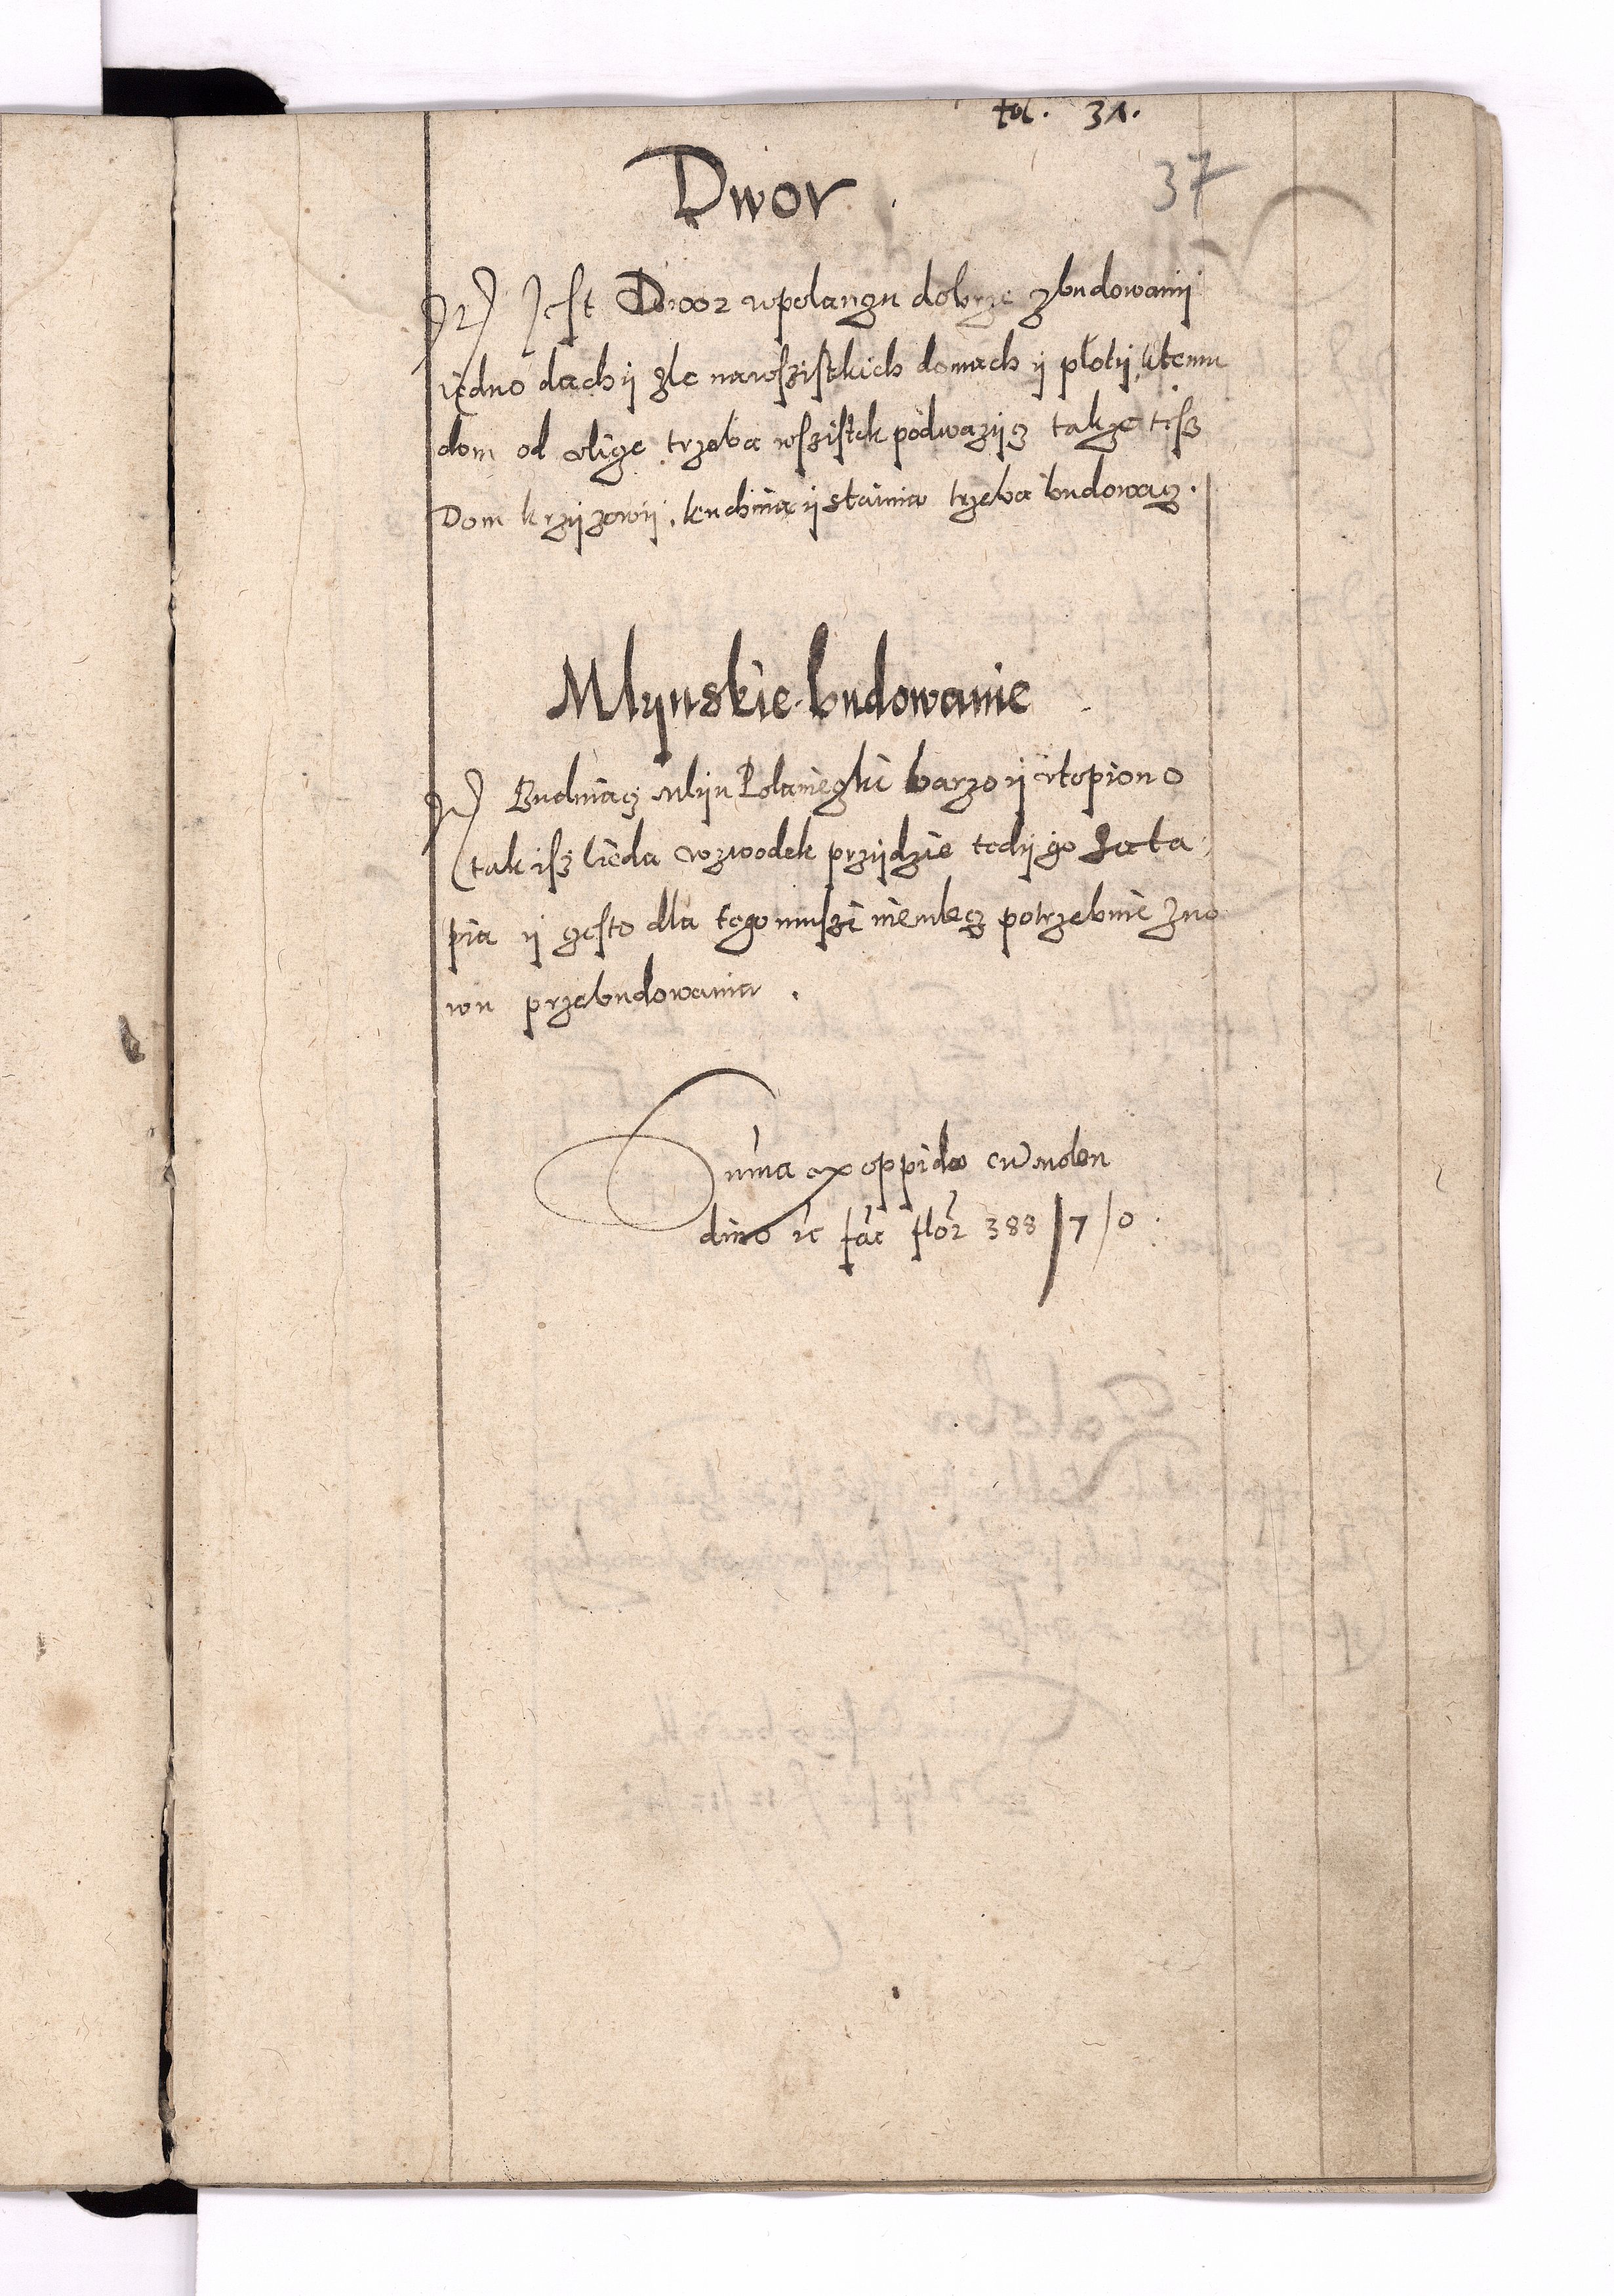 fol. 31.
37
Dwor
Jest Dwor wpolangu dobrze zbudowanij
iedno dachij zle nawszistkich domach ij płotij, ktemu
dom od vlicze trzeba wszistek podwazijcz takze tesz
Dom krzijzowij, kuchnia ij stainia trzeba budowacz.
Mlynskie budowanie
Budniacz mlijn Polanieczki barzo ij vtopiono
tak isz lieda wzwodek przijdzie tedij go zata
pia ij czesto dla tego muszi niemlecz potrzebnie zno
wu przebudowania.
Suma ex oppido cum molen
dino fac flor 388/7/0.